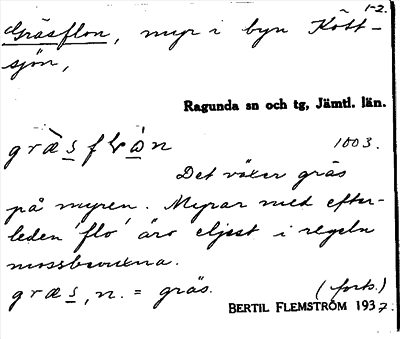 1-2.
Gräsflon, myr i byn Kött-
sjön,
Ragunda sn och tg, Jämtl. län.
1003.
Det växer gräs
på myren. Myrar med efter-
leden 'flo' äro eljest i regeln
mossbevuxna.
græs, n. = gräs.
(forts.)
BERTIL FLEMSTRÖM 1937.